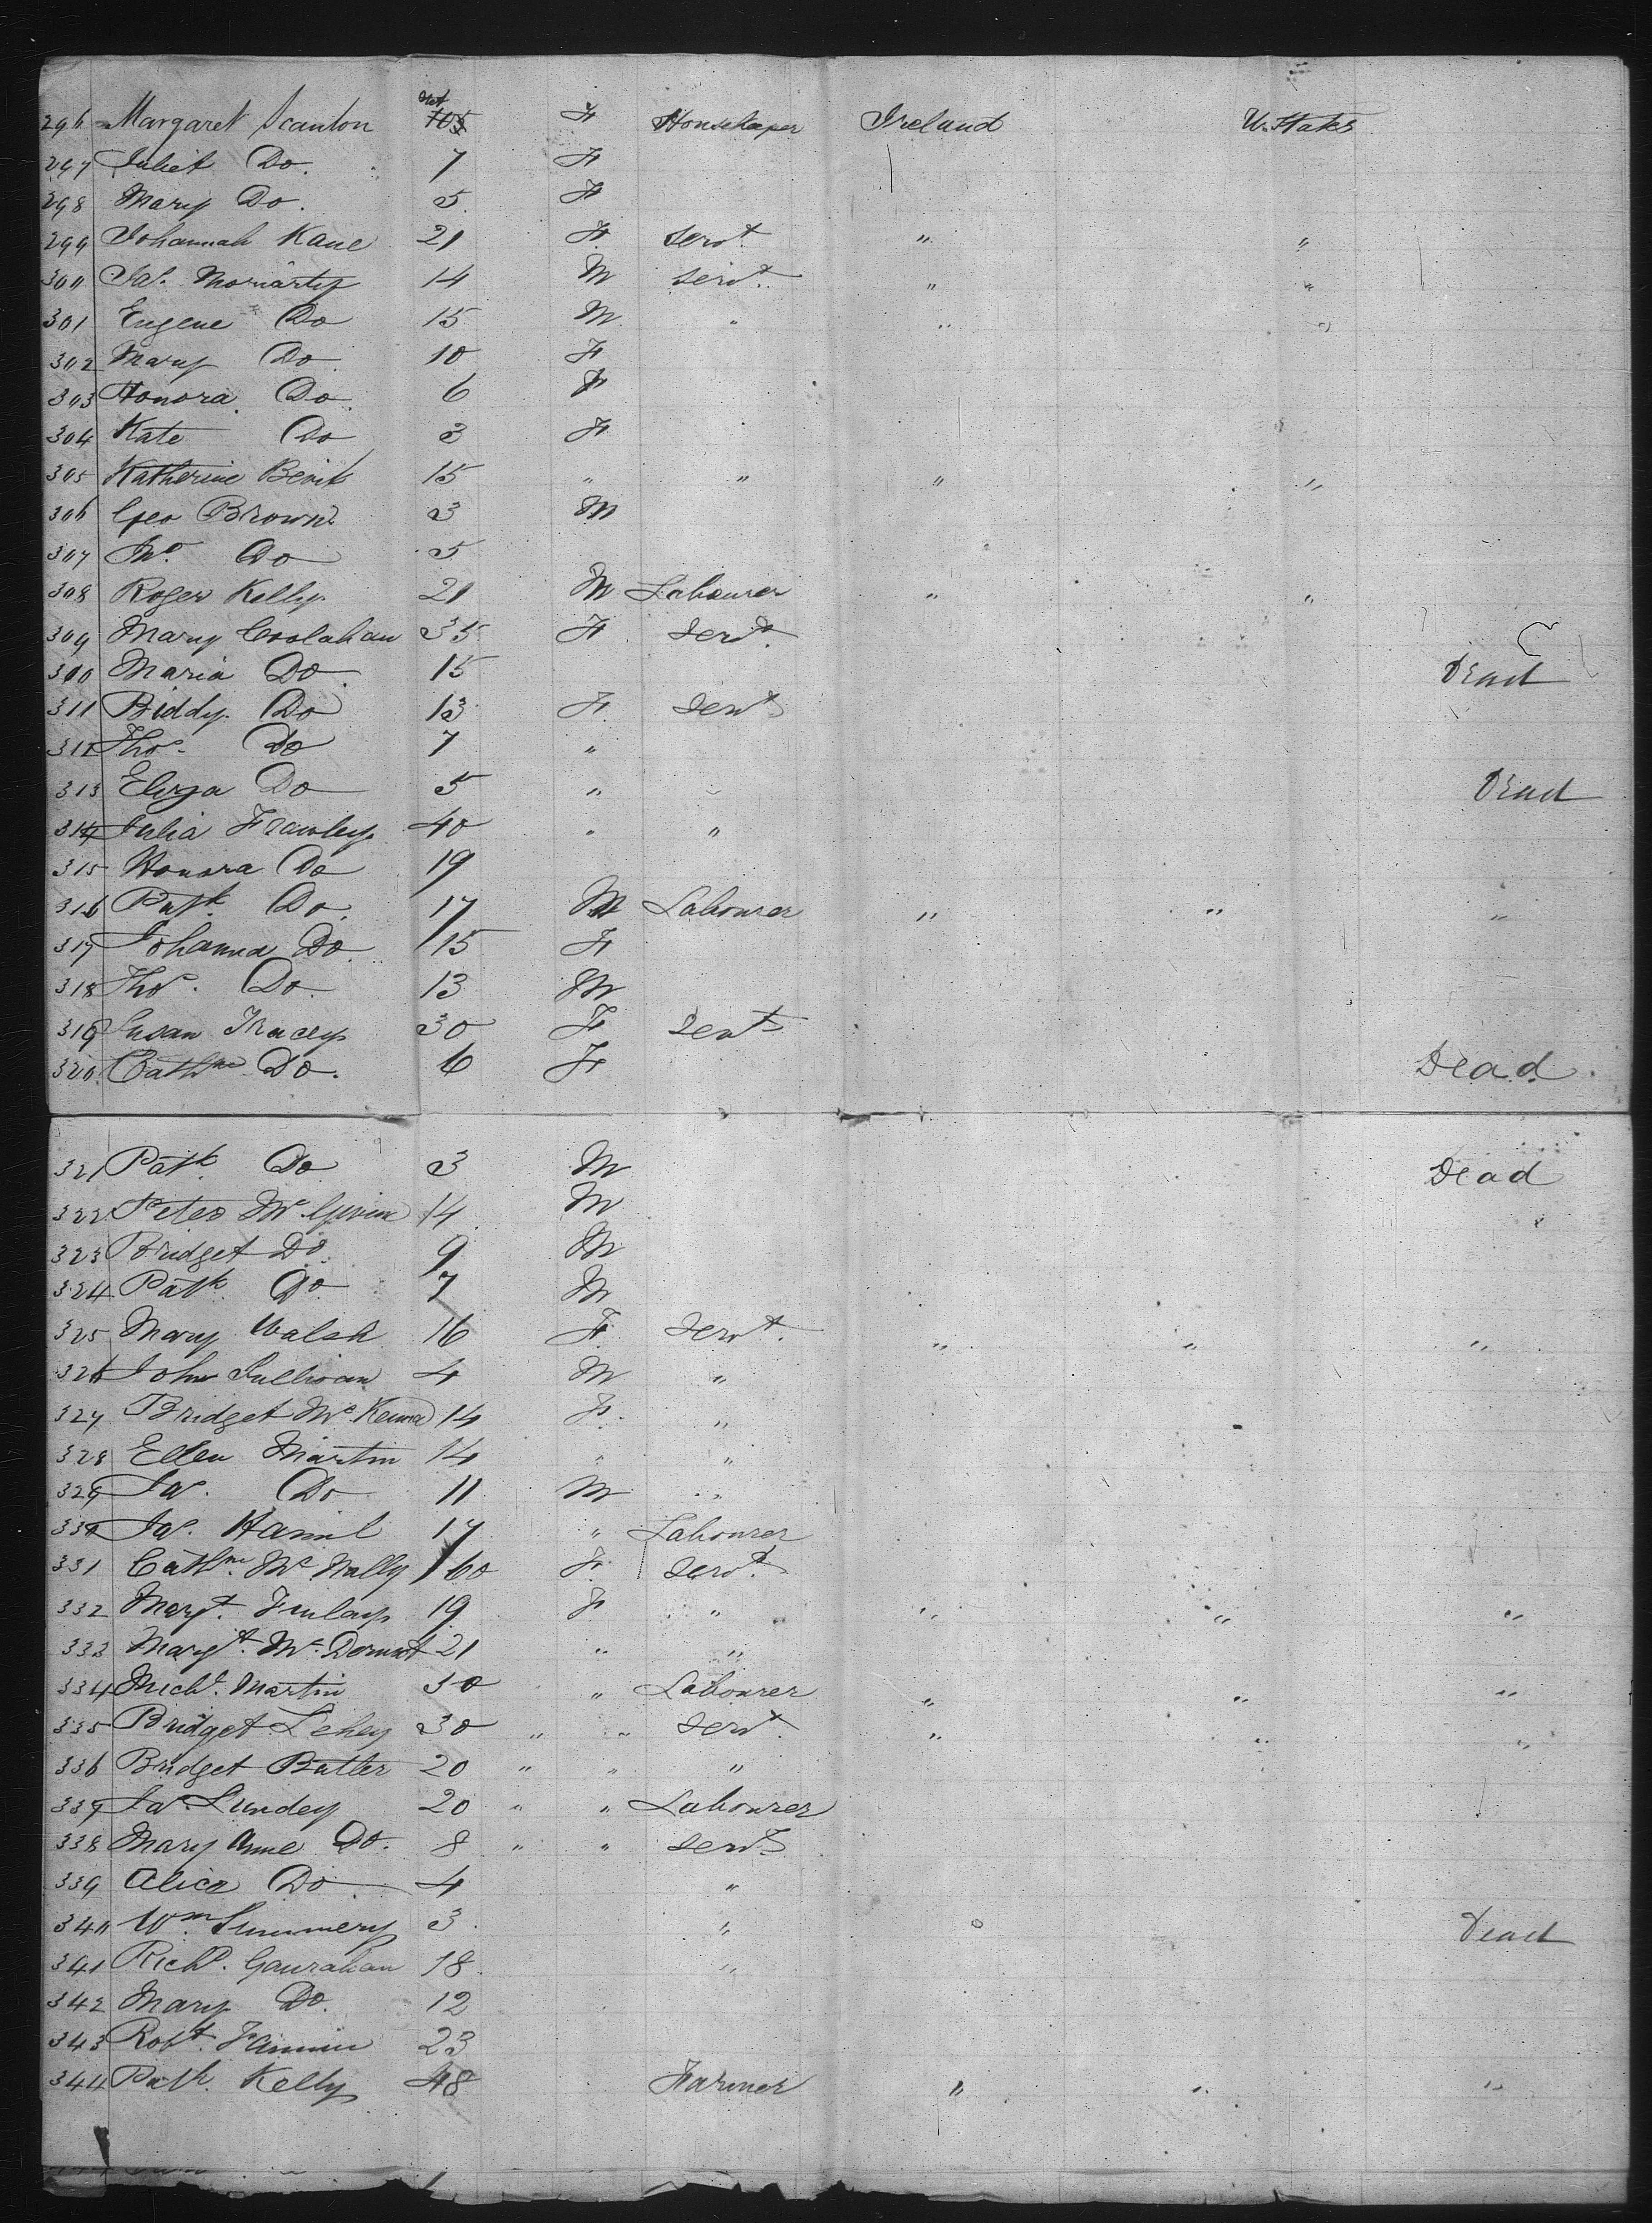 296 Margaret Scanlon F Housekeeper Ireland U. States
297 Juliet Do. 7 F
298 Mary Do. 5 F
299 Johannah Kane 21 F Servt. " "
300 Jas. Moriarty 14 M Servt. " "
301 Eugene Do 15 M " " "
302 Mary Do 10 F
303 Honora Do 6 F
304 Kate Do 3 F
305 Katherine 15 " " " "
306 Geo Brown 3 M
307 Jno. Do 5
308 Roger Kelly 21 M Labourer " "
309 Mary Coolahan 35 F Servt.
310 Maria Do. 15 Dead
311 Biddy Do 13 F Servt
312 Thos. Do 7 "
313 Eliza Do 5 " " Dead
314 Julia Frawley 40 " "
315 Honora Do 19
316 Patk. Do. 17 M Labourer " " "
317 Johanna Do. 15 F
318 Thos. Do. 13 M
319 Susan Tracey 30 F Servt
320 Cathne Do. 6 F Dead
321 Patk. Do 3 M Dead
322 Peter Mc 14 M
323 Bridget Do. 9 M
324 Patk. Do. 7 M
325 Mary Walsh 16 F Servt. " " "
326 John Sullivan 4 M "
327 Bridget Mc Kenna 14 F "
328 Ellen Martin 14 " "
329 Jas. Do 11 M "
330 Jas. Hamil 17 " Labourer
331 Cathne. Mc Nally 60 F Servt.
332 Margt. Finlay 19 F " " " "
333 Margt. Mc Dermot 21 " "
334 Michl. Martin 30 " Labourer " " "
335 Bridget Lehey 30 " " Servt. " " "
336 Bridget Butler 20 " " "
337 Jas. Lundey 20 " " Labourer
338 Mary Anne Do. 8 " " Servt
339 Alice Do 4 "
340 Wm. Summery 3 " Dead
341 Richd. Gaurahan 18 "
342 Mary Do. 12
343 Robt. Fannin 23
344 Patk. Kelly 48 Farmer " " "